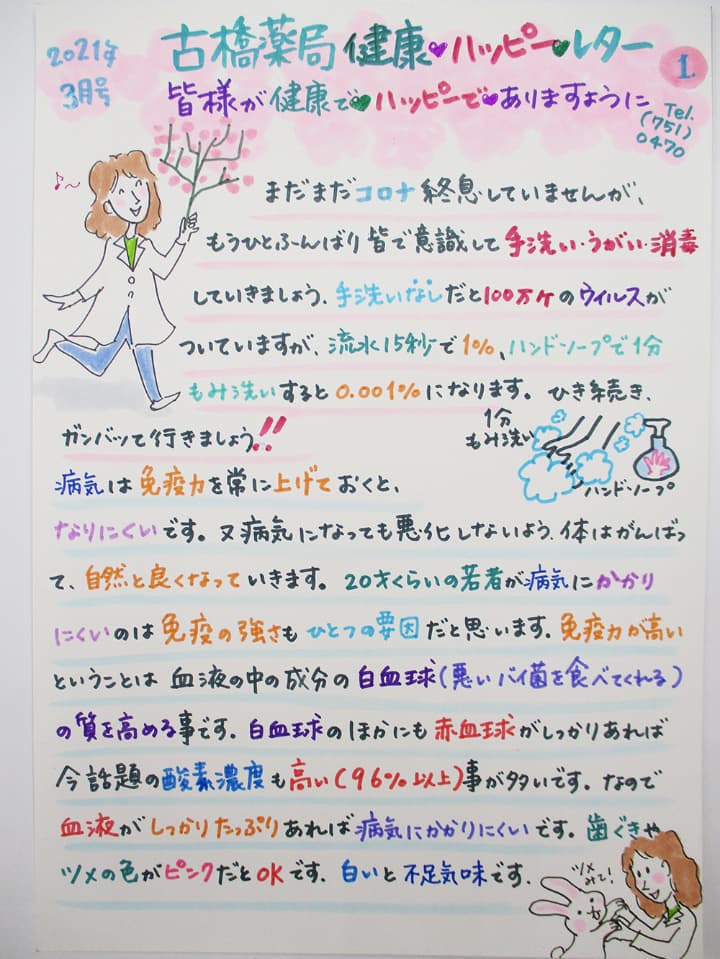 2021年
3月号
古橋薬局 健康♥ハッピー♥レター
1.
皆様が健康で♥ハッピーで♥ありますように
Tel.
(751)
0470
♪〜
まだまだコロナ終息していませんが、
もうひとふんばり皆で意識して手洗い・うがい・消毒
していきましょう。手洗いなしだと100万ケのウィルスが
ついていますが、流水15秒で1%、ハンドソープで1分
もみ洗いすると0.001%になります。ひき続き、
ガンバッて行きましょう!!
1分
もみ洗い
ハンドソープ
病気は免疫力を常に上げておくと、
なりにくいです。又病気になっても悪化しないよう、体はがんばっ
て、自然と良くなっていきます。20才くらいの若者が病気にかかり
にくいのは免疫の強さもひとつの要因だと思います。免疫力が高い
ということは血液の中の成分の白血球(悪いバイ菌を食べてくれる)
の質を高める事です。白血球のほかにも赤血球がしっかりあれば
今話題の酸素濃度も高い(96%以上)事が多いです。なので
血液がしっかりたっぷりあれば病気にかかりにくいです。歯ぐきや
ツメの色がピンクだとOKです。白いと不足気味です。
ツメ
みて!